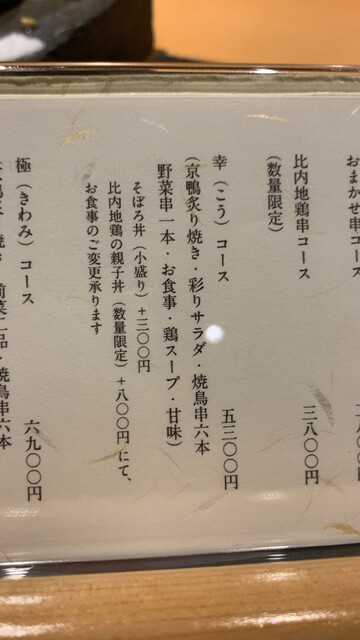 おまかせ串コース
比内地鶏串コース 三八〇〇円
(数量限定)
幸(こう)コース 五三〇〇円
(京鴨炙り焼き・彩りサラダ・焼鳥串六本
野菜串一本・お食事・鶏スープ・甘味)
そぼろ丼(小盛り)+三〇〇円
比内地鶏の親子丼(数量限定)+八〇〇円にて、
お食事のご変更承ります
極(きわみ)コース 六九〇〇円
前菜二品・焼鳥串六本